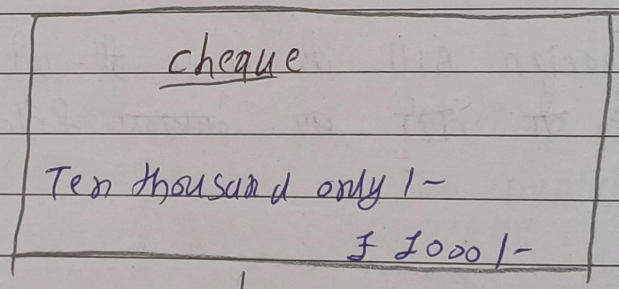 cheque
Ten thousand only /-
₹ 1000 /-